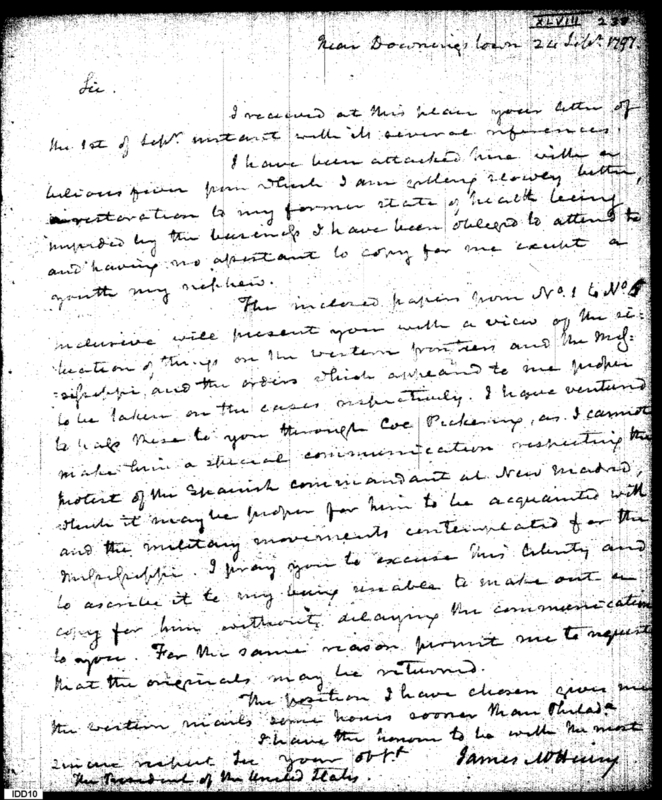 XLVIII 238
Near Downingstown 24 Sepr. 1797.
Sir.
I received at this place your letter of
the 1st of Sepr. instant with its several references.
I have been attacked here with a
bilious fever from which I am getting slowly better,
a restoration to my former state of health being
impeded by the business I have been obliged to attend to
and having no assistant to copy for me except a
youth my nephew.
The inclosed papers from No. 1 to No. 5
inclusive will present you with a view of the si-
tuation of things on the western frontiers and the Mis-
sisippi, and the orders which appeared to me proper
to be taken on the cases respectively. I have ventured
to pass these to you through Col Pickering, as I cannot
make him a special communication respecting the
protest of the Spanish commandant at New Madrid,
which it may be proper for him to be acquainted with
and the military movements contemplated for the
Mississippi. I pray you to excuse this liberty and
to ascribe it to my being unable to make out a
copy for him without delaying the communication
to you. For the same reason permit me to request
that the originals may be returned.
The position I have chosen gives me
the western mails some hours sooner than Philada.
I have the honour to be with the most
sincere respect Sir your obt.
James McHenry
The President of the United States.
IDD10